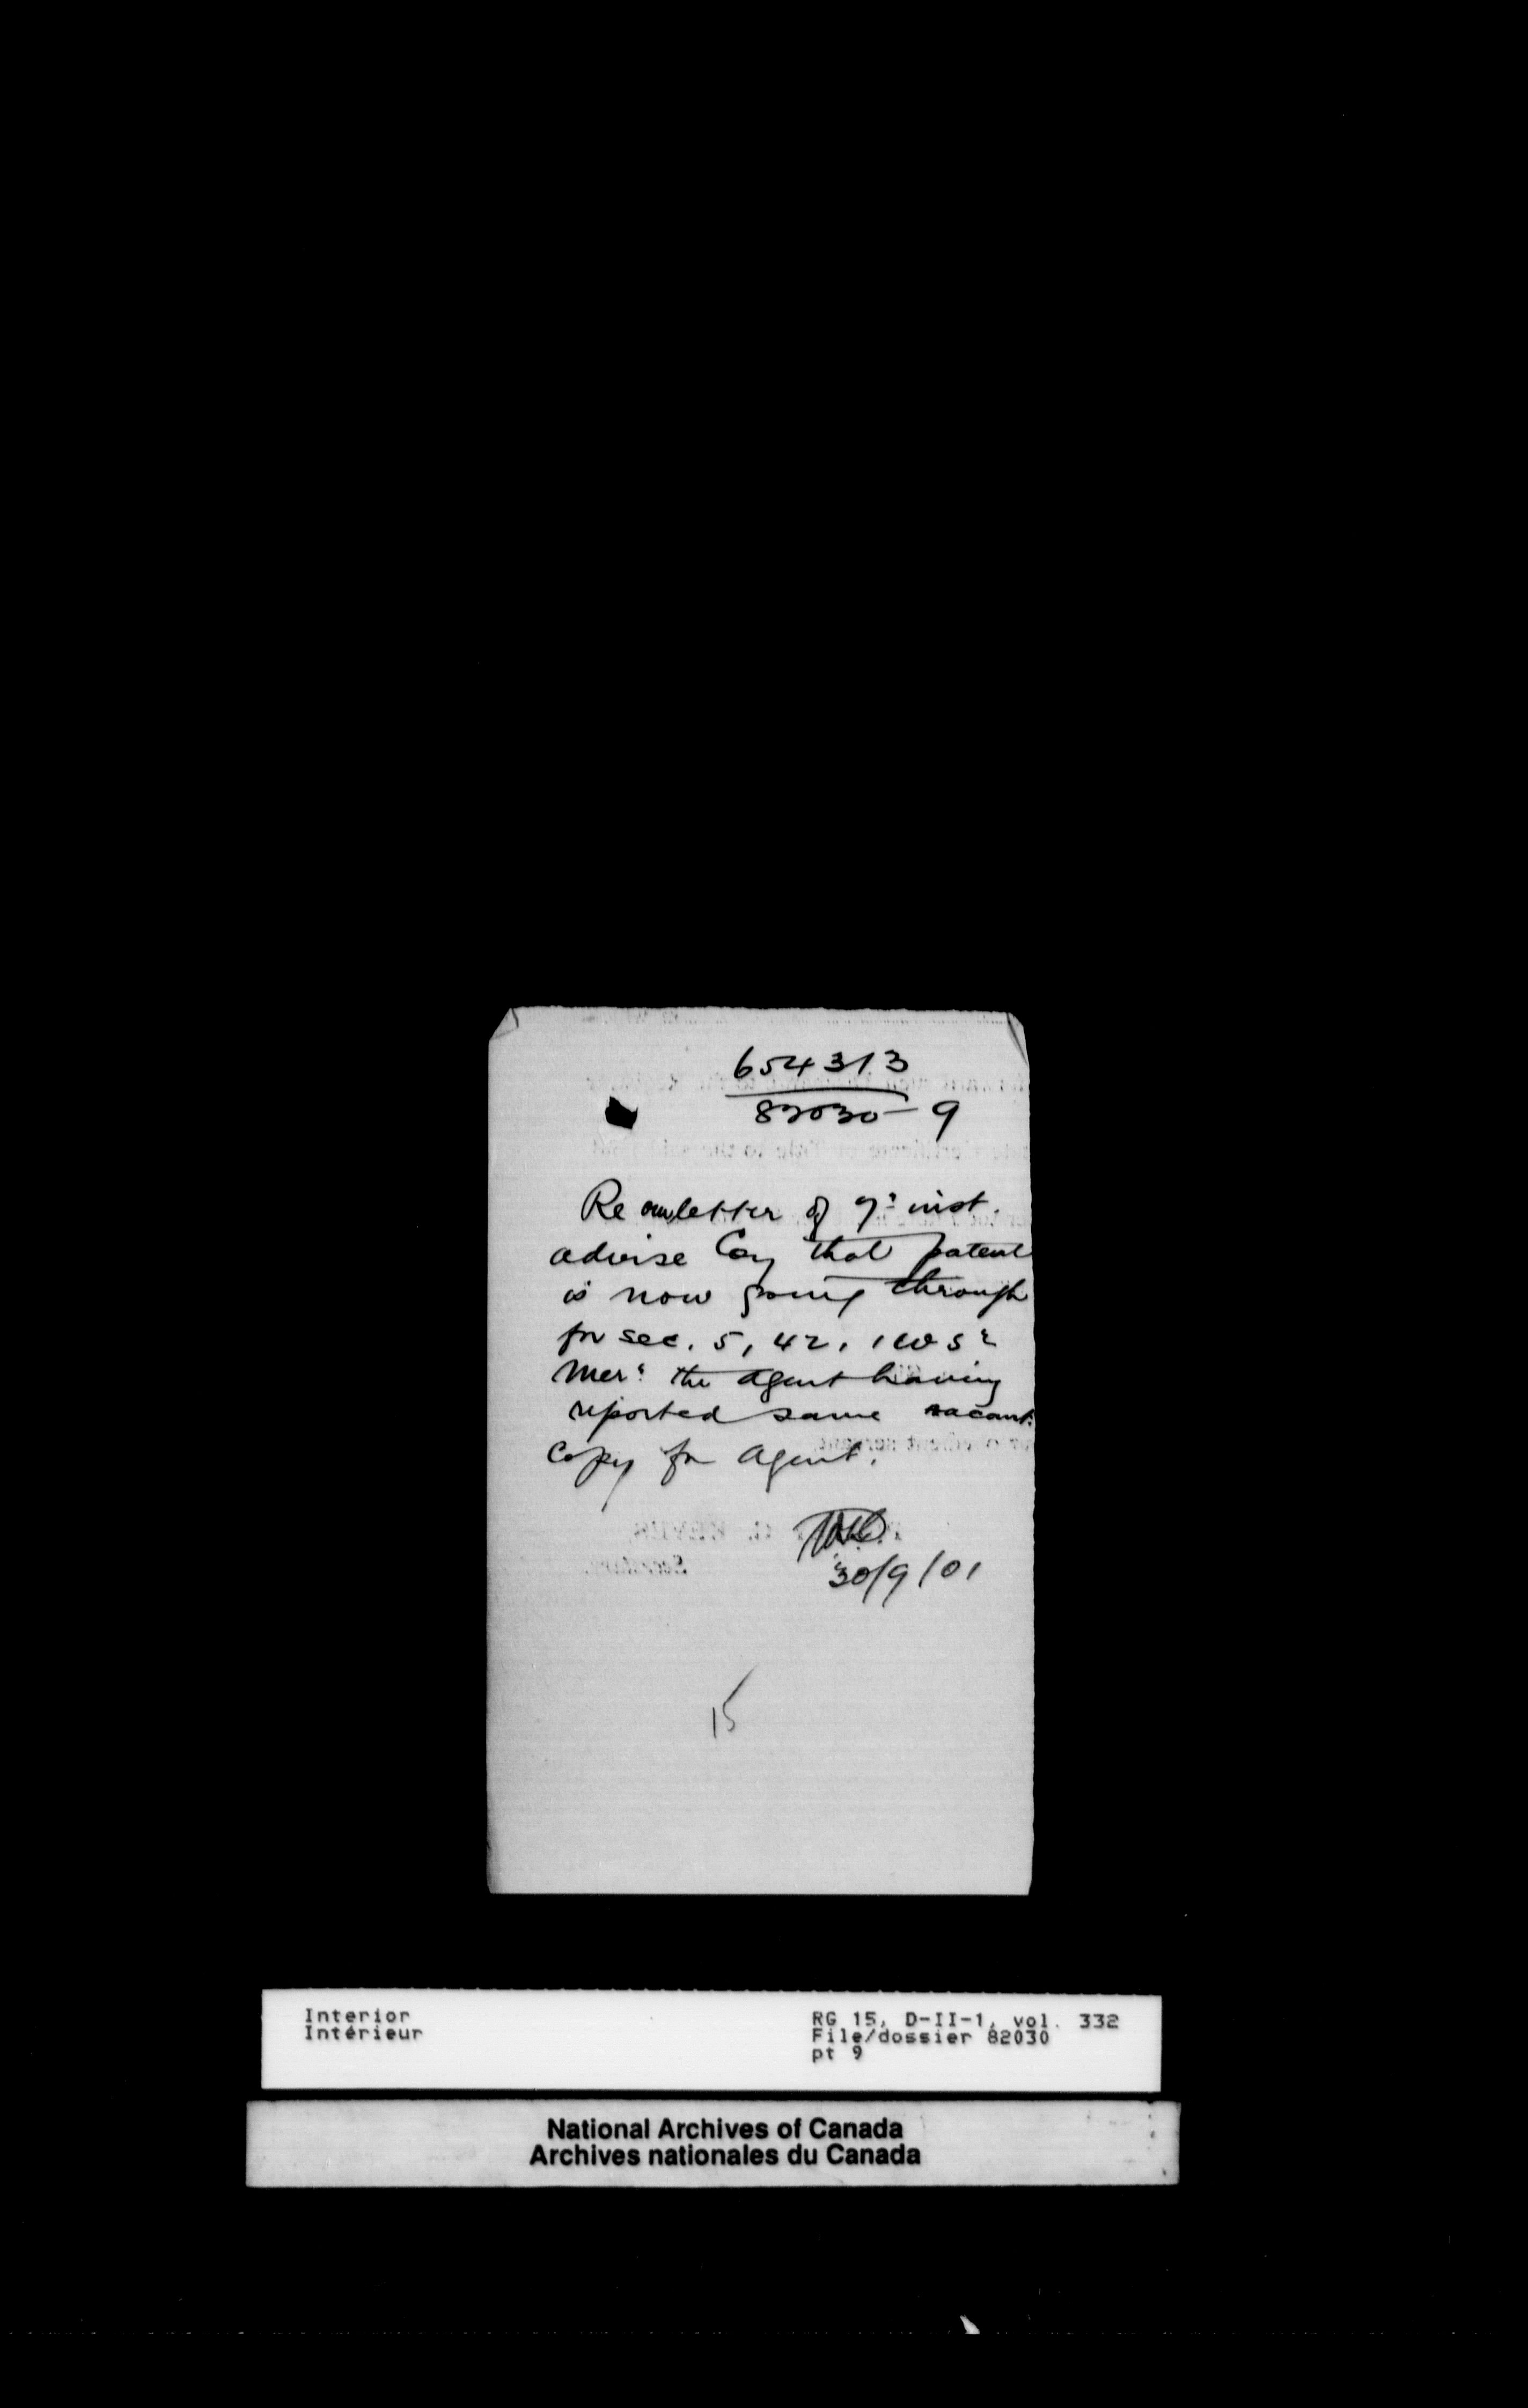 654313
82030-9
Re our letter of 7: inst.
advise Coy that patent
is now going through
for sec. 5, 42, 1 W 5:
Mer: the agent having
reported same vacant.
Copy for agent.
30/9/01
15
Interior
Intérieur
RG 15, D-II-1, vol. 332
File/dossier 82030
pt 9
National Archives of Canada
Archives nationales du Canada